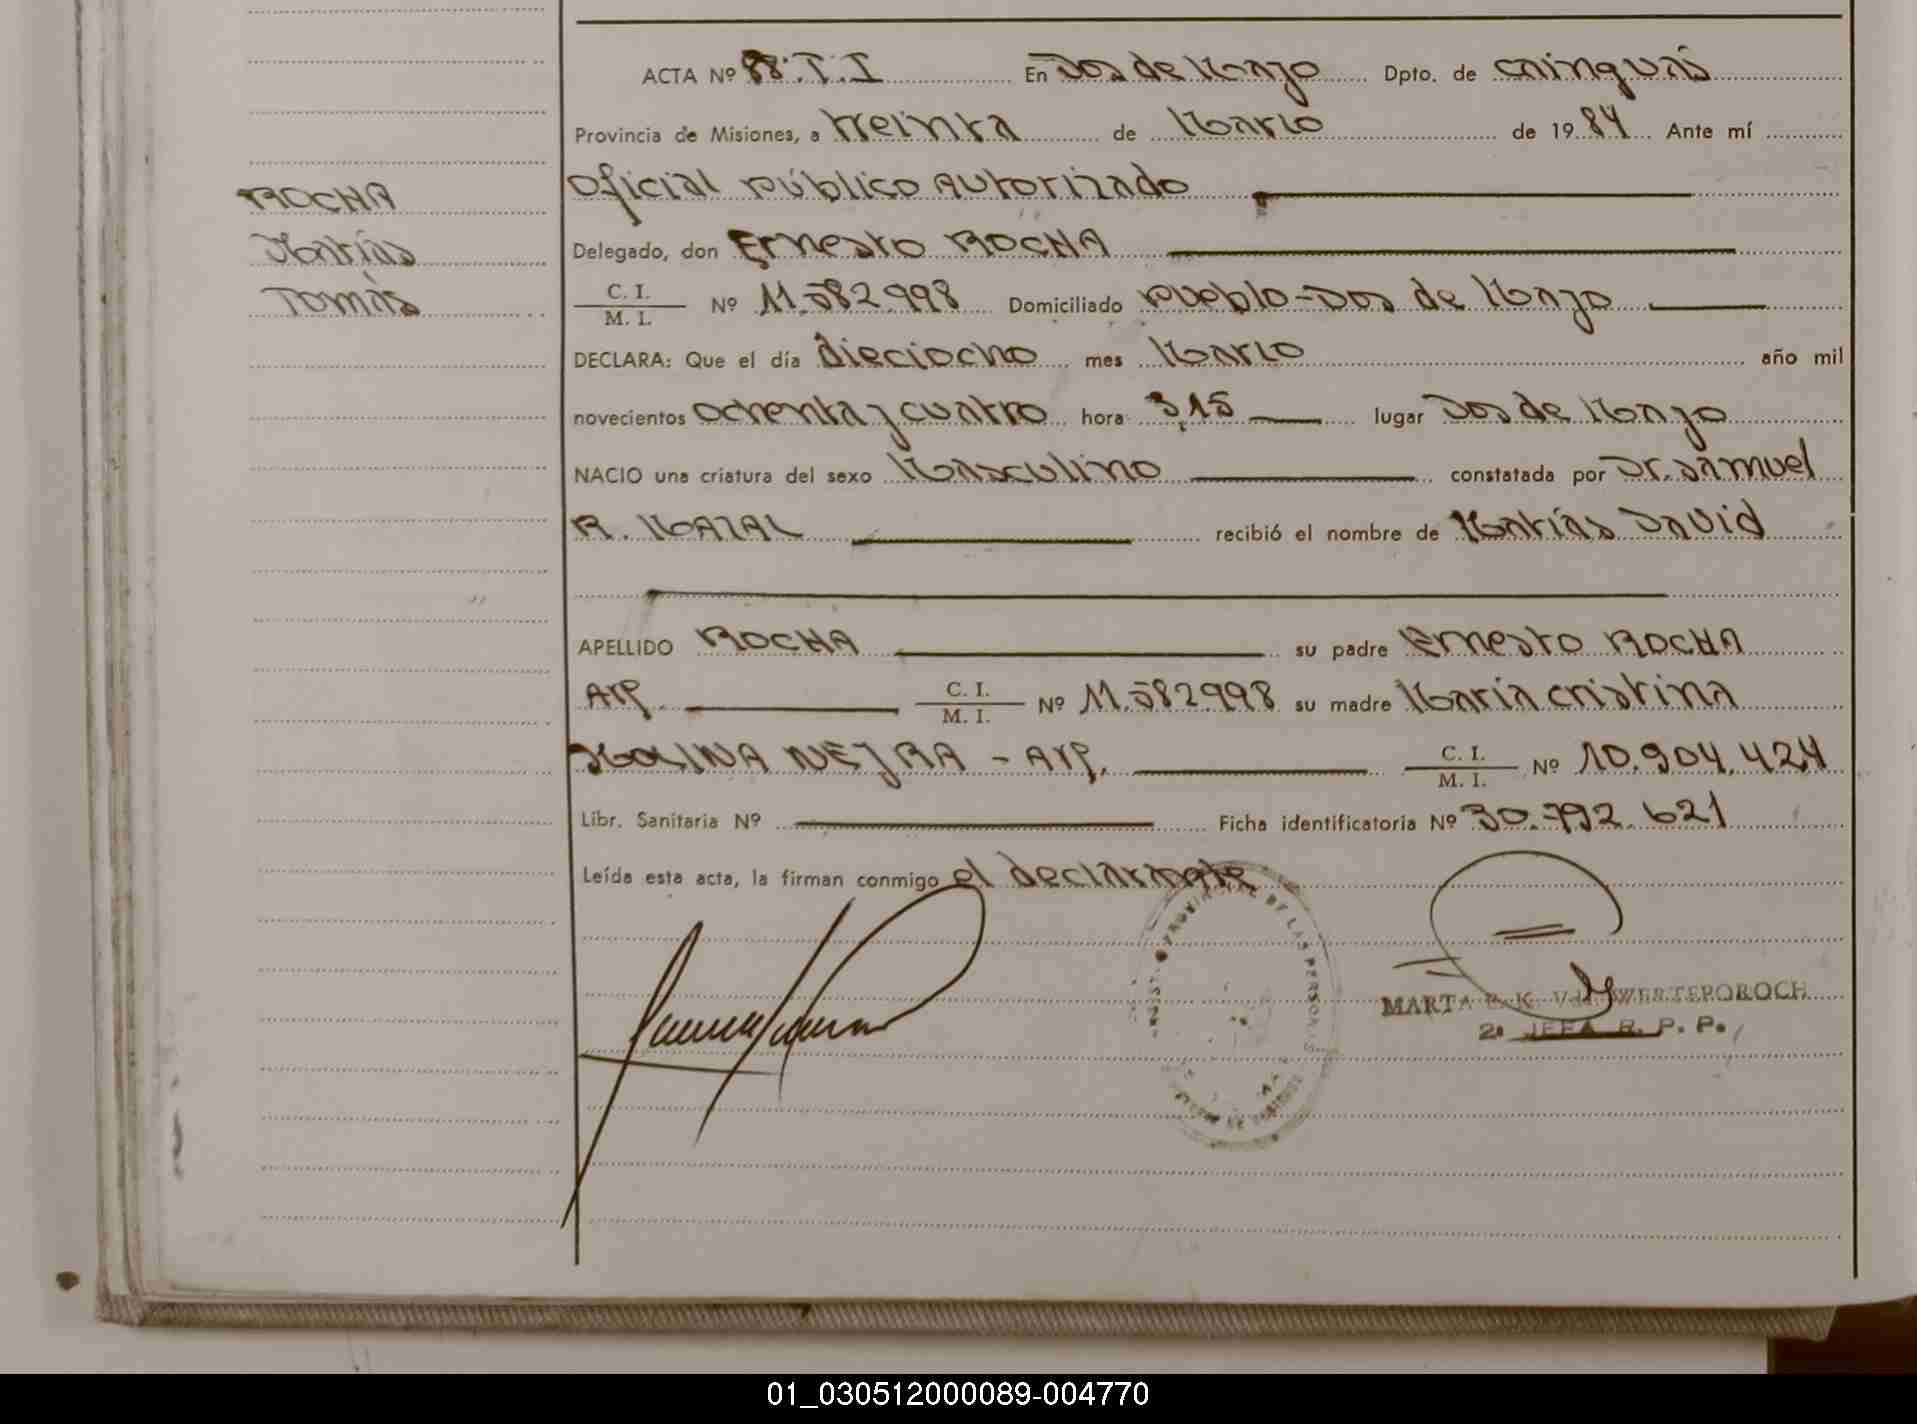 ACTA Nº 88.T.I En Dos de Mayo Dpto. de Cainguás
Provincia de Misiones, a treinta de Marzo de 1984 Ante mí
ROCHA
Oficial público Autorizado
Matías
Delegado, don Ernesto ROCHA
Tomás
C. I. / M. I. Nº 11.582.998 Domiciliado pueblo-Dos de Mayo
DECLARA: Que el día dieciocho mes Marzo año mil
novecientos ochenta y cuatro hora 3,15 lugar Dos de Mayo
NACIO una criatura del sexo Masculino constatada por Dr. Samuel
R. MAZAL recibió el nombre de Matías David
APELLIDO ROCHA su padre Ernesto ROCHA
Arg. C. I. / M. I. Nº 11.582.998 su madre María Cristina
MOLINA NEYRA - Arg. C. I. / M. I. Nº 10.904.424
Libr. Sanitaria Nº Ficha identificatoria Nº 30.792.621
Leída esta acta, la firman conmigo el declarante
PROVINCIAL DE LAS PERSONAS
MARTA E. K. V. WERTEPOROCH
2º JEFA R. P. P.
01_030512000089-004770